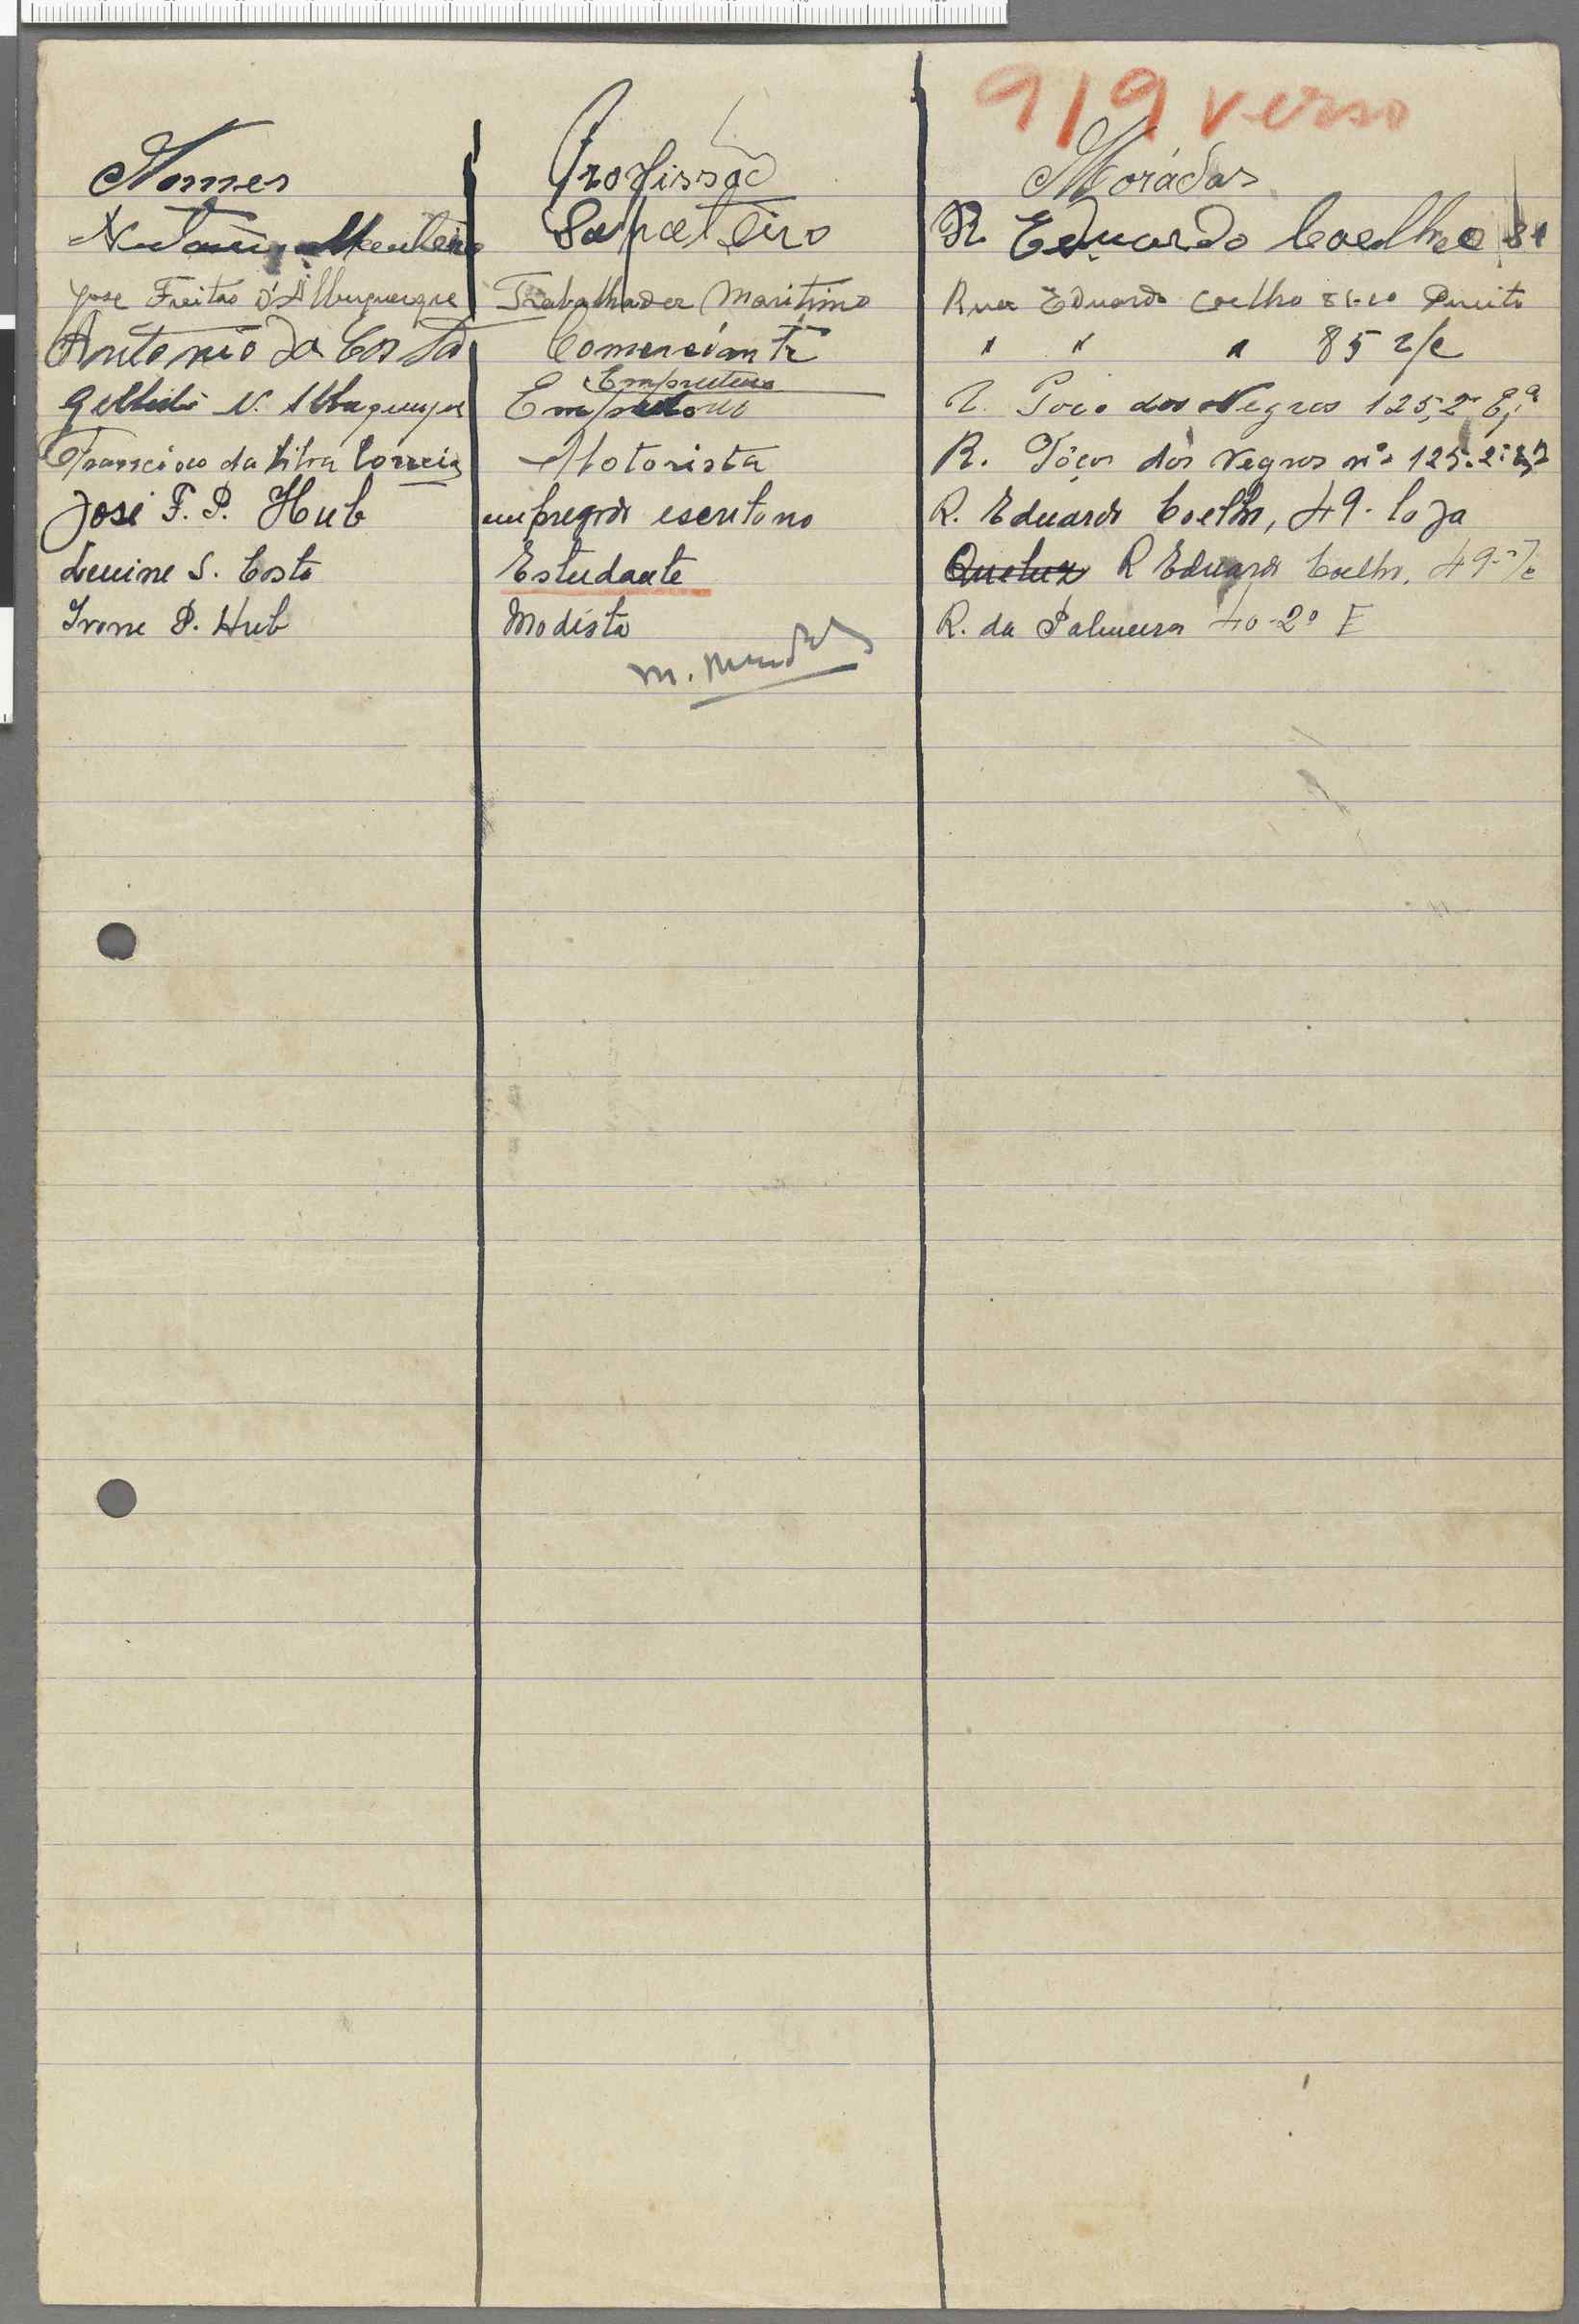 919 verso
Nomes Profissão Morádas
Monteiro Sapateiro R Eduardo Coelho 81
Jose Freitas D'Albuquerque Trabalhador Maritimo Rua Eduardo Coelho Direito
Antonio da Costa Comerciante " " " 85 r/c
Empreteiro
N. Albuquerque R. Poço dos Negros 125, 2º
Francisco da Silva Correia Motorista R. Pôço dos Negros nº 125-2º
José F. P. Hub empregado escritorio R. Eduardo Coelho, 49-loja
Lenine S. Costa Estudante Queluz R Eduardo Coelho, 49-r/c
Ivone P. Hub Modista R. da Palmeira 40-2º E
M. Mendes